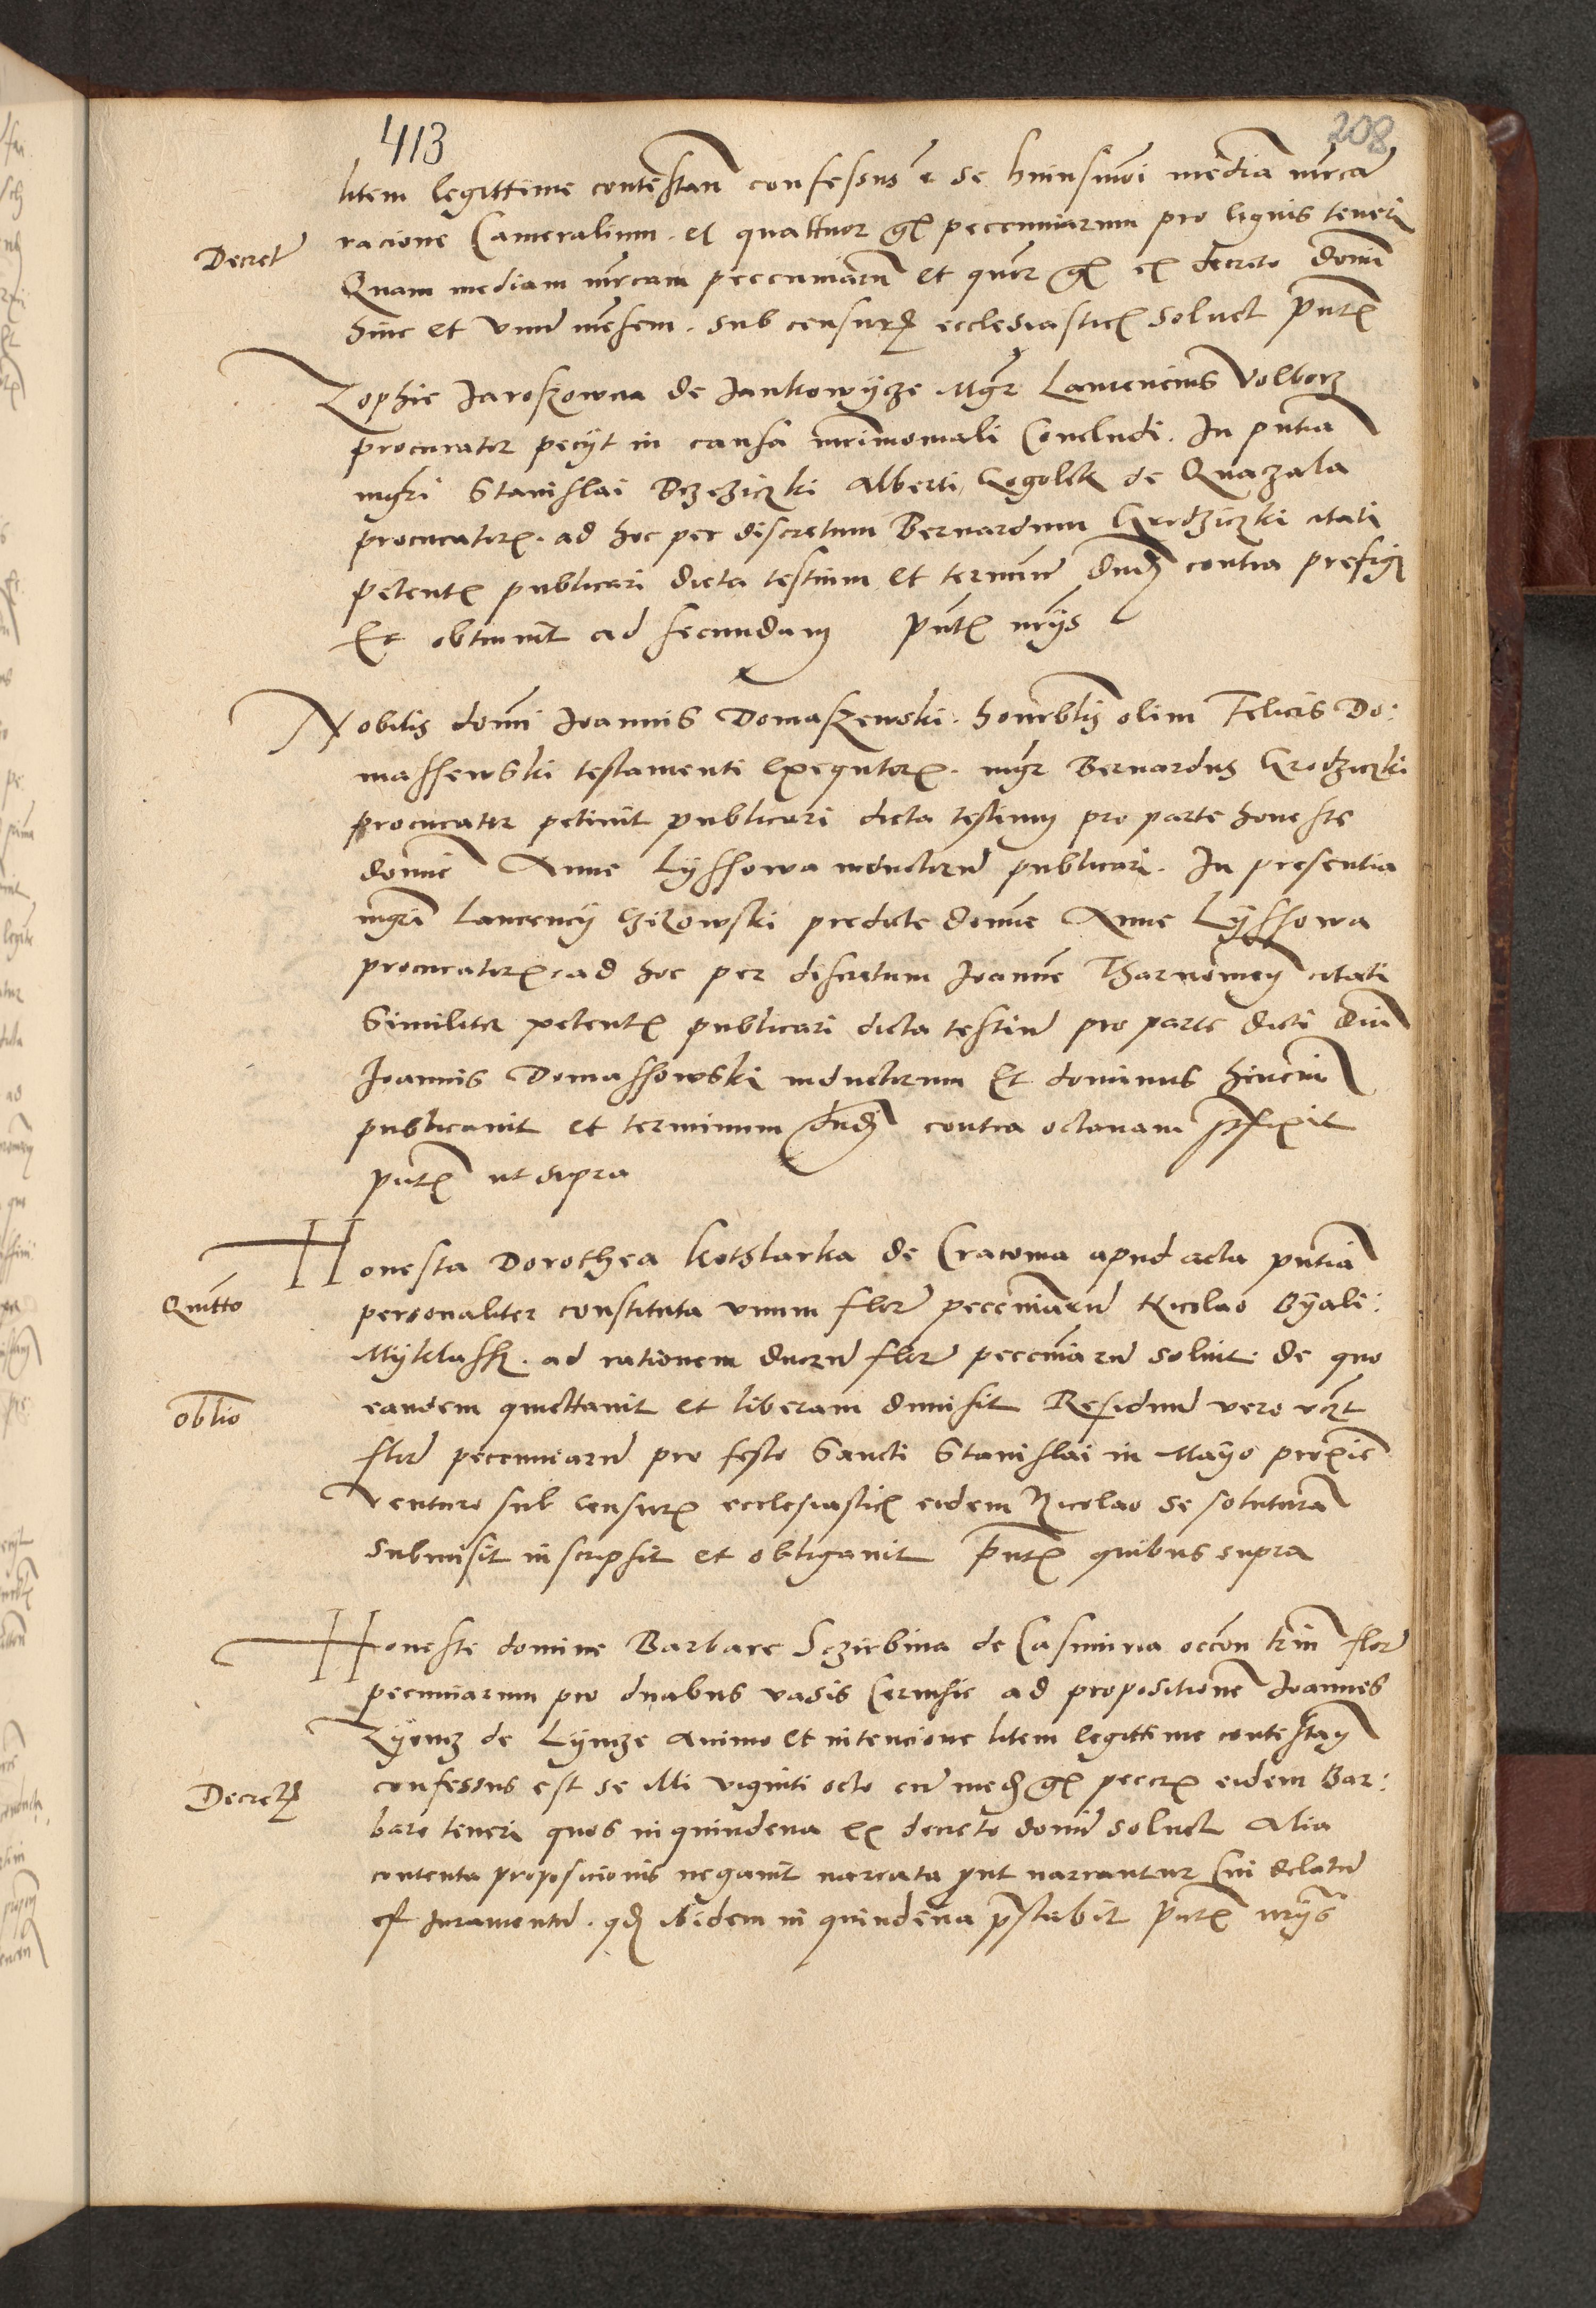 413
208
litem legittime contestan confessus e se huiusmoi media mrca
racione Cameralium et quattuor gr pecuniarum pro lignis teneri
Decret
Quam mediam mrcam pecuniaru et quor gr ex decreto domi
hinc et vnu mesem sub censuris ecclesiasticis soluet pntx
Zophie Jaroszowna de Jankowycze Mgr Laurencius Volborz
procurator pecyt in causa mrimoniali Concludi. In pntia
mgri Stanislai Bzeziczki Alberti Gogolek de Quazala
procuratoris. ad hoc per discretum Bernardum Grodziczki citati
petentis publicari dicta testium et terminu dndi contra prefigi
Et obtinuit ad secundam pntx mrijs
Nobilis domi Joannis Domaszewski. honrblis olim Felicis Do:
massewski testamenti exequtoris. mgr Bernardus Grodziczki
procurator petiuit publicari dicta testium pro parte honeste
domie Anne Lyssowa inductoru publicari. In presentia
mgri Laurencij Gizowski predicte domne Anne Lyssowa
procuratoris ad hoc per discretum Joanne Tharnomey citati
Similiter petentis publicari dicta testiu pro parte dicti dni
Joannis Domassowski inductorum Et dominus hincin
publicauit et terminum dndi contra octauam pfixit
pntx ut supra
Honesta Dorothea Kotslarka de Cracouia apud acta pntia
Quitto
personaliter constituta vnum flor pecuniaru Nicolao Byali:
Myklassz. ad rationem duoru flor pecuniaru soluit. de quo
oblio
eandem quiettauit et liberam dimisit Residuu vero vczt
flor pecuniaru pro festo Sancti Stanislai in Mayo proxie
venturo sub censuris ecclesiasticis eidem Nicolao se solutura
submisit inscripsit et obligauit pntx quibus supra
Honeste domine Barbare Sczirbina de Casimiria occon triu flor
pecuniarum pro duabus vasis Ceruisie ad propositione Joannes
Zyomz de Lymze animo et intencione litem legittime contestan
confessus est se illi viginti octo cu medi gr peccrx eidem Bar:
Decretu
bare teneri quos in quindena ex decreto domi soluet Alia
contenta proposicionis negauit narrata put narrantur Cui delatu
est Juramentu. qd ibidem in quindena pstabit pntx mrijs